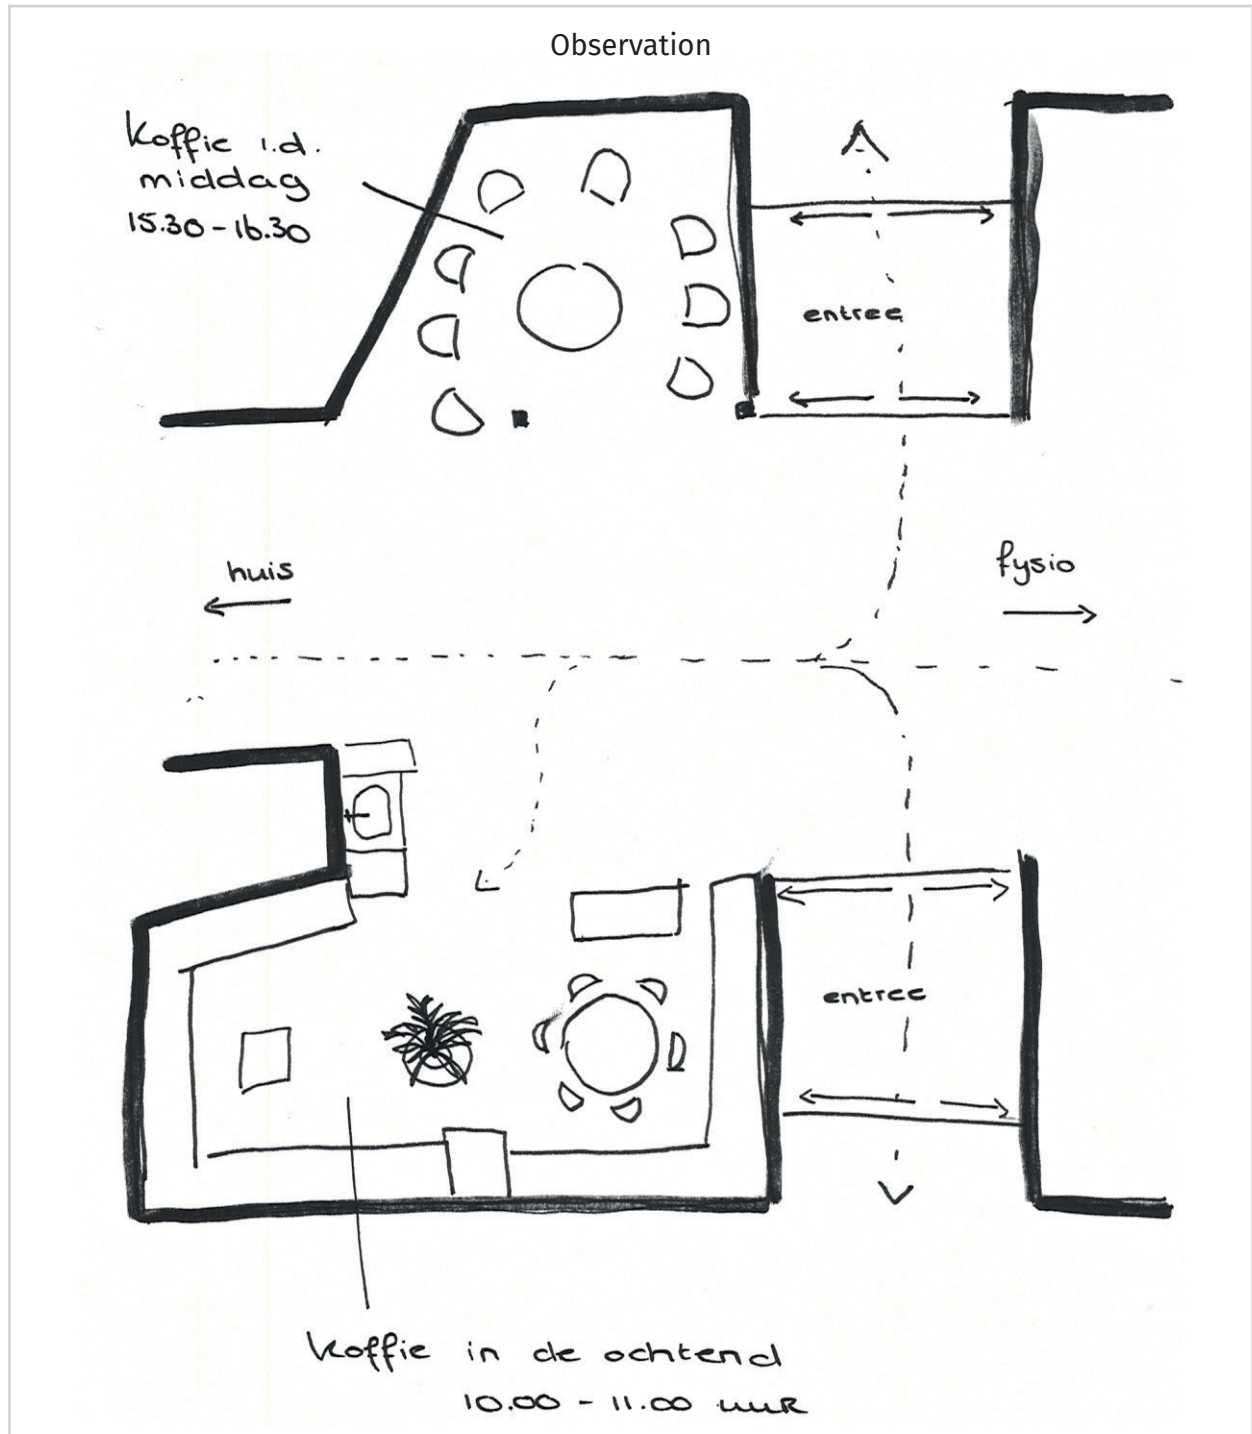 Observation
Koffie i.d.
middag
15.30 - 16.30
entree
huis
fysio
entree
Koffie in de ochtend
10.00 - 11.00 uuR